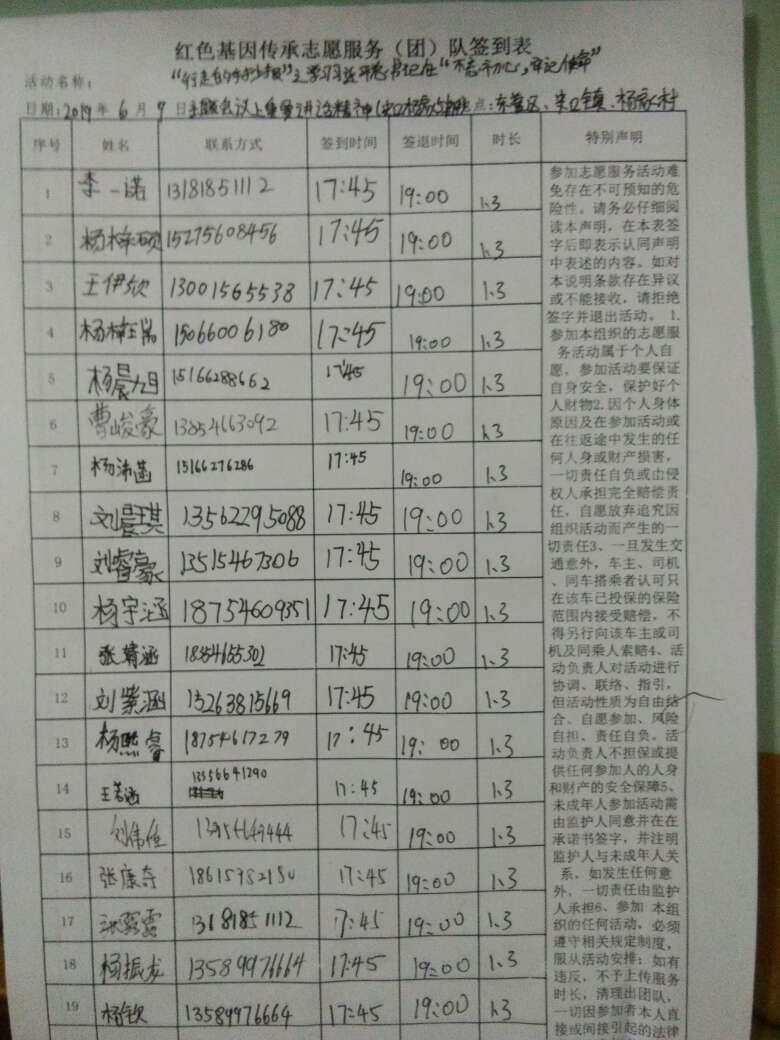 红色基因传承志愿服务（团）队签到表
活动名称：
"不忘初心，牢记使命"
日期：2019年6月9日 点：东营区、牛庄镇、杨家村
序号 姓名 联系方式 签到时间 签退时间 时长 特别声明
1 李一诺 13181851112 17:45 19:00 1.3
2 15275608456 17:45 19:00 1.3
3 王伊欣 13001565538 17:45 19:00 1.3
4 15066006180 17:45 19:00 1.3
5 杨晨旭 15166288662 17:45 19:00 1.3
6 曹峻豪 13854663092 17:45 19:00 1.3
7 杨沛菡 15166276286 17:45 19:00 1.3
8 13562295088 17:45 19:00 1.3
9 刘睿豪 13515467306 17:45 19:00 1.3
10 杨宇涵 18754609351 17:45 19:00 1.3
11 张箐涵 17:45 19:00 1.3
12 刘紫涵 15263815669 17:45 19:00 1.3
13 杨熙睿 18754617279 17:45 19:00 1.3
14 王若涵 13356641290 17:45 19:00 1.3
15 17:45 19:00 1.3
16 张康奇 17:45 19:00 1.3
17 17:45 19:00 1.3
18 杨振龙 13589976664 17:45 19:00 1.3
19 杨钦 13589976664 17:45 19:00 1.3
参加志愿服务活动难
免存在不可预知的危
险性。请务必仔细阅
读本声明，在本表签
字后即表示认同声明
中表述的内容。如对
本说明条款存在异议
或不能接收，请拒绝
签字并退出活动。 1.
参加本组织的志愿服
务活动属于个人自
愿，参加活动要保证
自身安全，保护好个
人财物2.因个人身体
原因及在参加活动或
在往返途中发生的任
何人身或财产损害，
一切责任自负或由侵
权人承担完全赔偿责
任，自愿放弃追究因
组织活动而产生的一
切责任3、一旦发生交
通意外，车主、司机
、同车搭乘者认可只
在该车已投保的保险
范围内接受赔偿，不
得另行向该车主或司
机及同乘人索赔4、活
动负责人对活动进行
协调、联络、指引，
但活动性质为自由结
合、自愿参加、风险
自担、责任自负。活
动负责人不担保或提
供任何参加人的人身
和财产的安全保障5、
未成年人参加活动需
由监护人同意并在在
承诺书签字，并注明
监护人与未成年人关
系，如发生任何意
外，一切责任由监护
人承担6、参加 本组
织的任何活动，必须
遵守相关规定制度，
服从活动安排；如有
违反，不予上传服务
时长，清理出团队，
一切因参加者本人直
接或间接引起的法律